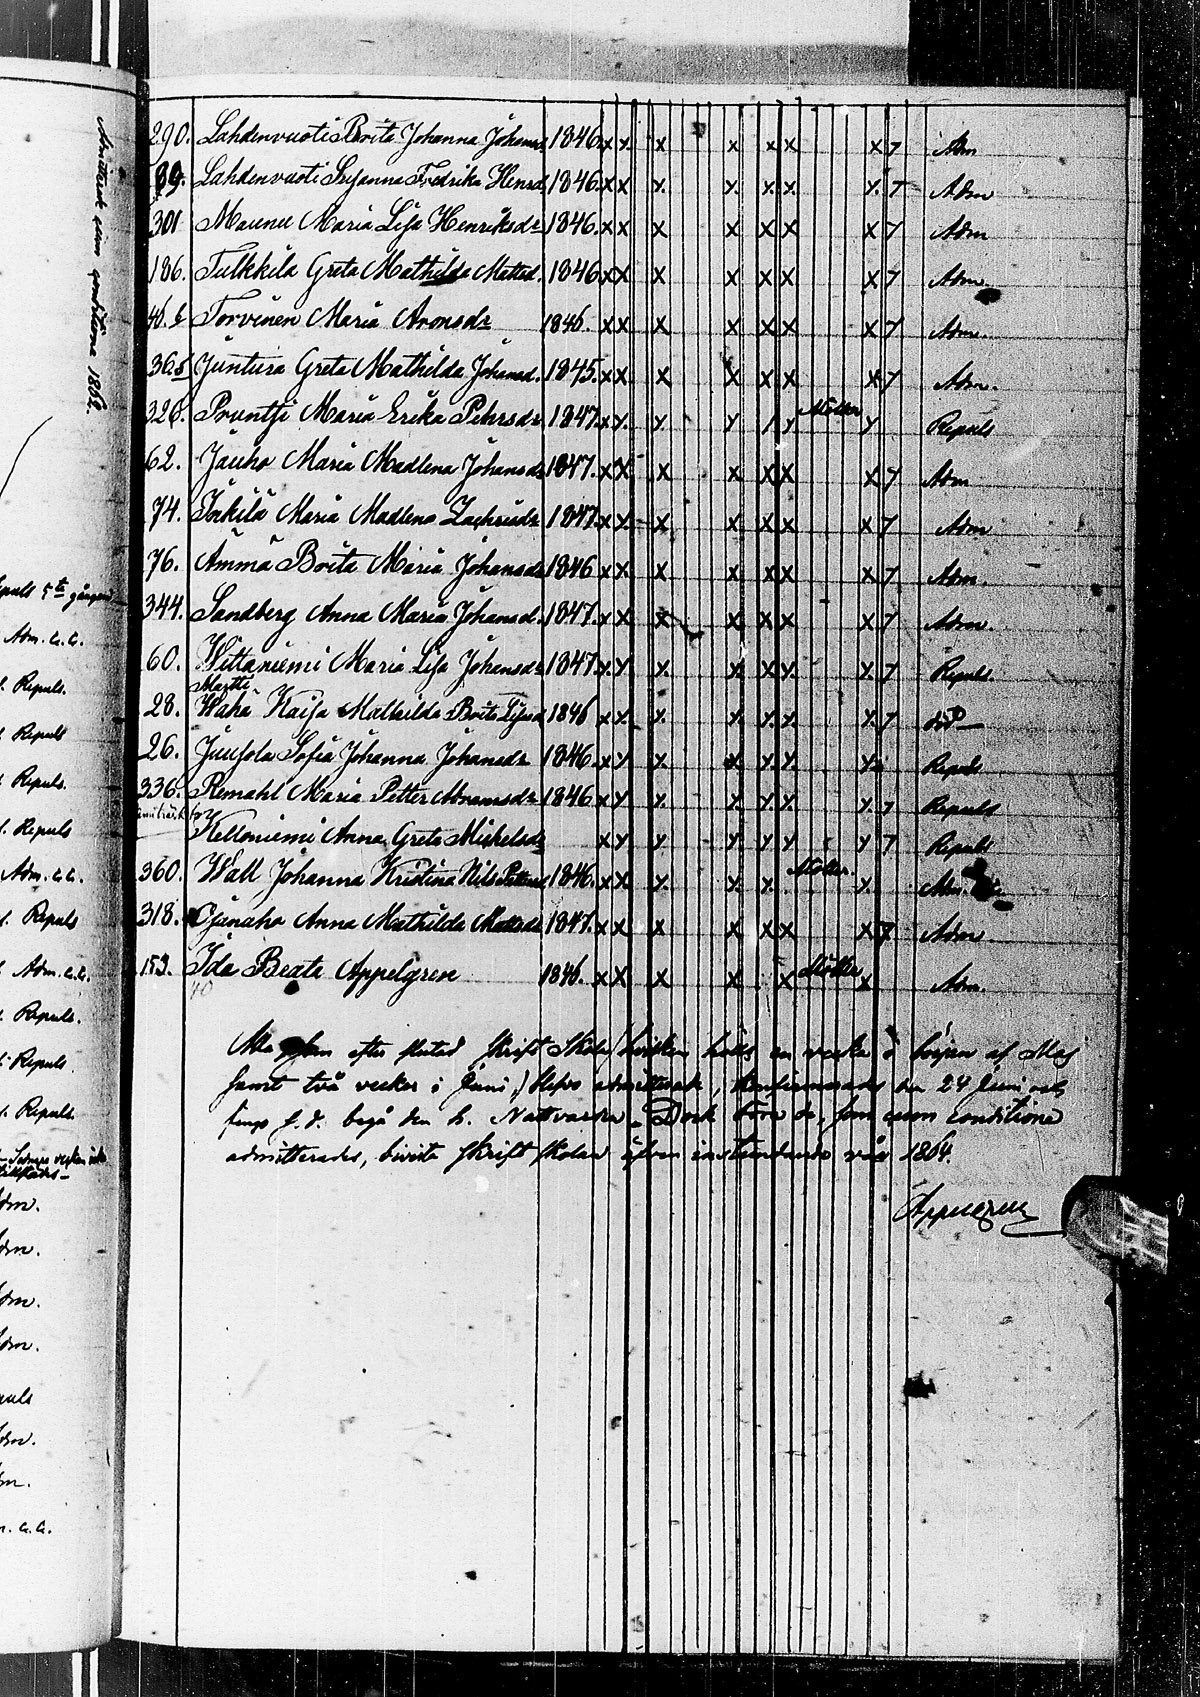 puls 5te gången
Adm. c.c.
Repuls.
Repuls
Repuls.
Repuls
Adm. c.c.
Repuls
Adm. c.c.
Repuls.
Repuls
Repuls
Adm.
Adm.
Adm.
Adm.
puls
Adm.
c.c.
1862.
290. Lahdenvuoti Brita Johanna Johansd. 1846. x x x x x x x 7 Adm
89. Lahdenvuoti Susanna Fredrika Henrd. 1846. x x x x x x x 7 Adm
301 Maunu Maria Lisa Henriksdr 1846. x x x x x x x 7 Adm
186. Tulkkila Greta Mathilda Mattsd. 1846 x x x x x x x 7 Adm.
46. b Torvinen Maria Aronsdr 1846. x x x x x x x 7 Adm.
365 Juntura Greta Mathilda Johansd. 1845. x x x x x x x 7 Adm.
326. Pruntti Maria Erika Pehrsdr 1847. x x x x / x Möller x Repuls
62. Jauho Maria Madlena Johansdr 1847. x x x x x x x 7 Adm
74. Inkilä Maria Madlena Zachrisdr 1847. x x x x x x x 7 Adm
76. Ämmä Brita Maria Johansdr 1846 x x x x x x x 7 Adm.
344. Sandberg Anna Maria Johansd. 1847. x x x x x x x 7 Adm.
60. Wittaniemi Maria Lisa Johansdr 1847. x x x x x x x 7 Repuls.
Martti
28. Waha Kaisa Mathilda Brita Lisasd 1846 x x x x x x x 7
26. Juujola Sofia Johanna Johansdr 1846. x x x x x x x Repuls
336. Remahl Maria Petter Abramsdr 1846 x x x x x x x 7 Repuls
Kelloniemi Anna Greta Mickelsdr x x x x x x x 7 Repuls
360. Wall Johanna Kristina Nils Pettersd 1846. x x x x x Möller x Adm.
318. Ojanaho Anna Mathilda Mattsdr 1847. x x x x x x x 7 Adm
153. Ida Beata Appelgren 1846. x x x x x Möller x Adm.
40
Alla efter slutad Skrift Skola (hvilken hölls en vecka i början af Maj
samt två veckor i Juni,) blefvo admitterade, konfirmerades den 24 Juni och
fingo s. d. begå den h. Nattvarden. Dock böra de, som cum conditione
admitterades, bivista skriftskolan äfven instundande vår 1864.
Appelgren